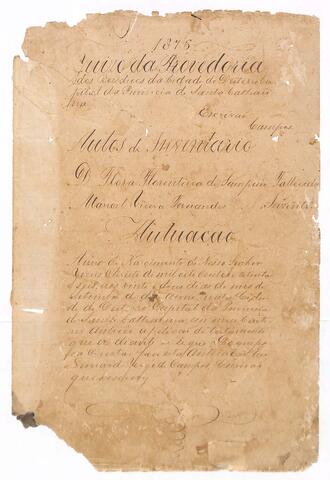 1875
Juizo da Provedoria
dos Residuos da Cidade do Desterro Ca
pital da Provincia de Santa Cathari
na
Escrivão
Campos
Autos de Inventario
D. Flora Florentina de Fallecida
Manoel Vieira Fernandes Inventar
Autuacão
Anno do Nascimento de Nosso Senhor
Jesus Christo de mil oito centos e setenta
e aos vinte e dias do mez de
Setembro do dito anno nesta Cida
de do Desterro Capital da Provincia
de Santa Catharina em meu carto
rio autuei a petição de
que ao diante se segue do que pa
ra constar faço esta Autuacão Eu
Leonardo Jorge de Campos Escrivão
que escrevy